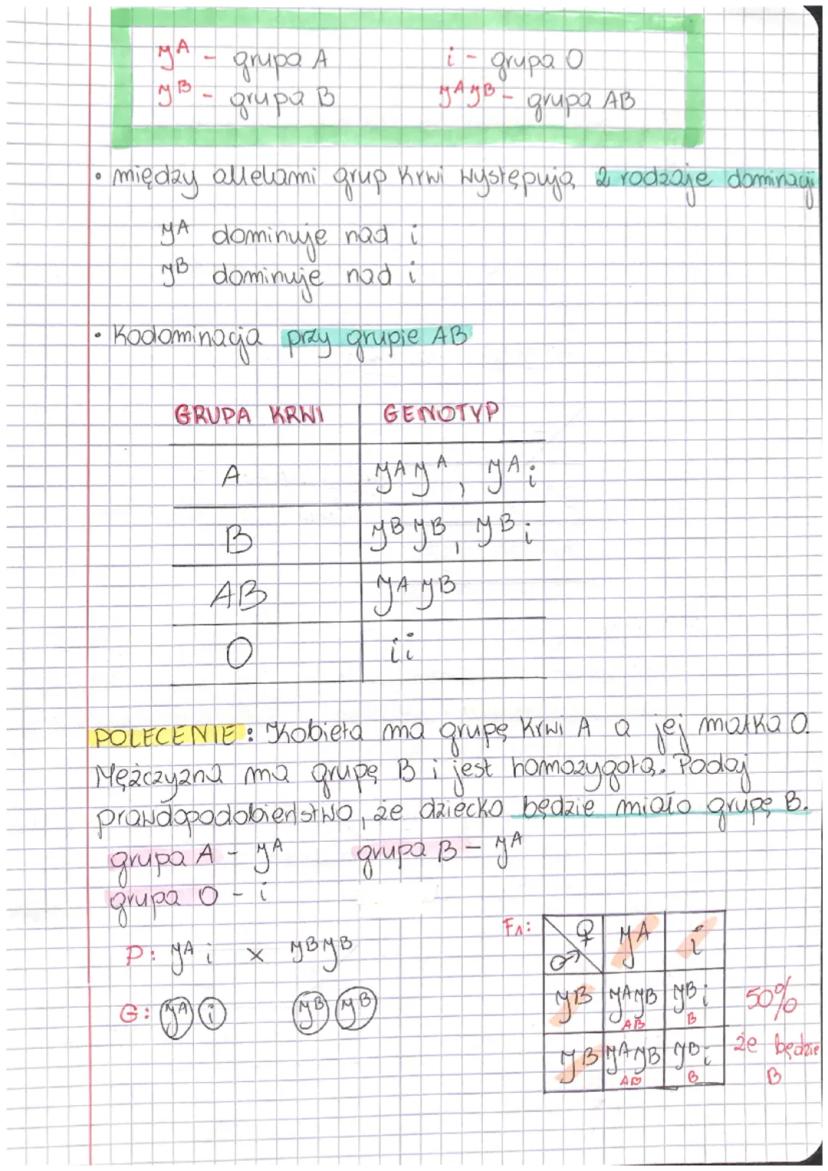 yᴬ - grupa A    i - grupa O
yᴮ - grupa B    yᴬyᴮ - grupa AB
• między allelami grup krwi występują 2 rodzaje dominacji
yᴬ dominuje nad i
yᴮ dominuje nad i
• kodominacja przy grupie AB
GRUPA KRWI    GENOTYP
A    yᴬyᴬ, yᴬi
B    yᴮyᴮ, yᴮi
AB    yᴬyᴮ
O    ii
POLECENIE: Kobieta ma grupę krwi A a jej matka O.
Mężczyzna ma grupę B i jest homozygotą. Podaj
prawdopodobieństwo, że dziecko będzie miało grupę B.
grupa A - yᴬ    grupa B - yᴬ
grupa O - i
P: yᴬi x yᴮyᴮ
G: yᴬ i    yᴮ yᴮ
F₁: ♀ ♂ yᴬ i
yᴮ yᴬyᴮ yᴮi 50%
AB B
yᴮ yᴬyᴮ yᴮi że będzie
AB B B